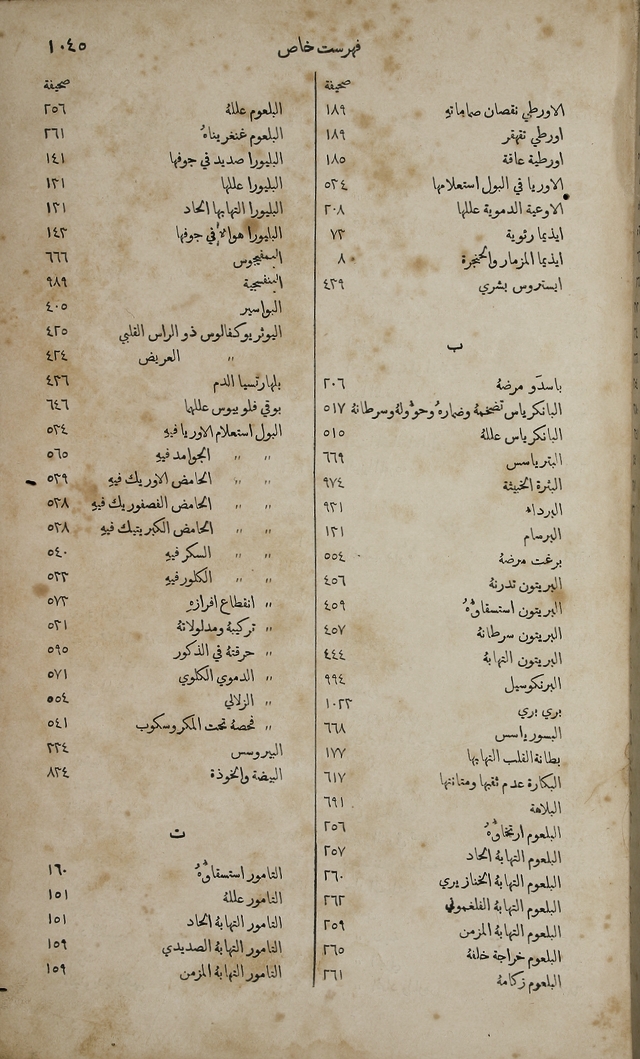 فهرست خاص ١٠٤٥
صحيفة
الاورطي نقصان صماماتهِ ١٨٩
اورطي تقهقر ١٨٩
اورطية عاقة ١٨٥
الاوريا في البول استعلامها ٥٢٤
الاوعية الدموية عللها ٢٠٨
ايذيما رئوية ٧٢
ايذيما المزمار والحنجرة ٨
ايستروس بشري ٤٢٩
ب
باسدَو مرضهُ ٢٠٦
البانكرياس تضخمهُ وضمارهُ وحؤولهُ وسرطانهُ ٥١٧
البانكرياس عللهُ ٥١٥
البترياسس ٦٦٩
البثرة الخبيثة ٩٧٤
البرداء ٩٢١
البرسام ١٢١
برغت مرضهُ ٥٥٤
البريتون تدرنهُ ٤٥٦
البريتون استسقاؤُهُ ٤٥٩
البريتون سرطانهُ ٤٥٧
البريتون التهابهُ ٤٤٤
البرنكوسيل ٩٩٤
بري بري ١٠٢٢
البسورياسس ٦٦٨
بطانة القلب التهابها ١٧٧
البكارة عدم ثقبها ومتانتها ٦١٧
البلاهة ٦٩١
البلعوم ارتخاؤُهُ ٢٥٦
البلعوم التهابهُ الحاد ٢٥٧
البلعوم التهابهُ الخنازيري ٢٦٠
البلعوم التهابهُ الفلغموني ٢٦٢
البلعوم التهابهُ المزمن ٢٥٩
البلعوم خراجة خلفهُ ٢٦٥
البلعوم زكامهُ ٢٦١
صحيفة
البلعوم عللهُ ٢٥٦
البلعوم غنغريناهُ ٢٦١
البليورا صديد في جوفها ١٤١
البليورا عللها ١٢١
البليورا التهابها الحاد ١٢١
البليورا هواءٌ في جوفها ١٤٢
البمفيجوس ٦٦٦
البنفسجية ٩٨٩
البواسير ٤٠٥
البوثريوكفالوس ذو الراس القلبي ٤٢٥
〃 العريض ٤٢٤
بلهارتسيا الدم ٤٣٦
بوقي فلوبيوس عللها ٦٤٦
البول استعلام الاوريا فيهِ ٥٢٤
〃 〃 الجوامد فيهِ ٥٦٥
〃 〃 الحامض الاوريك فيهِ ٥٢٩
〃 〃 الحامض الفصفوريك فيهِ ٥٢٨
〃 〃 الحامض الكبريتيك فيهِ ٥٢٨
〃 〃 السكر فيهِ ٥٤٠
〃 〃 الكلور فيهِ ٥٢٢
〃 انقطاع افرازهِ ٥٧٢
〃 تركيبهُ ومدلولاتهُ ٥٢١
〃 حرقتهُ في الذكور ٥٩٥
〃 الدموي الكلوي ٥٧١
〃 الزلالي ٥٥٤
〃 فحصهُ تحت المكروسكوب ٥٤١
البيروسس ٢٢٤
البيضة والخوذة ٨٢٤
ت
التامور استسقاؤُهُ ١٦٠
التامور عللهُ ١٥١
التامور التهابهُ الحاد ١٥١
التامور التهابهُ الصديدي ١٥٩
التامور التهابهُ المزمن ١٥٩